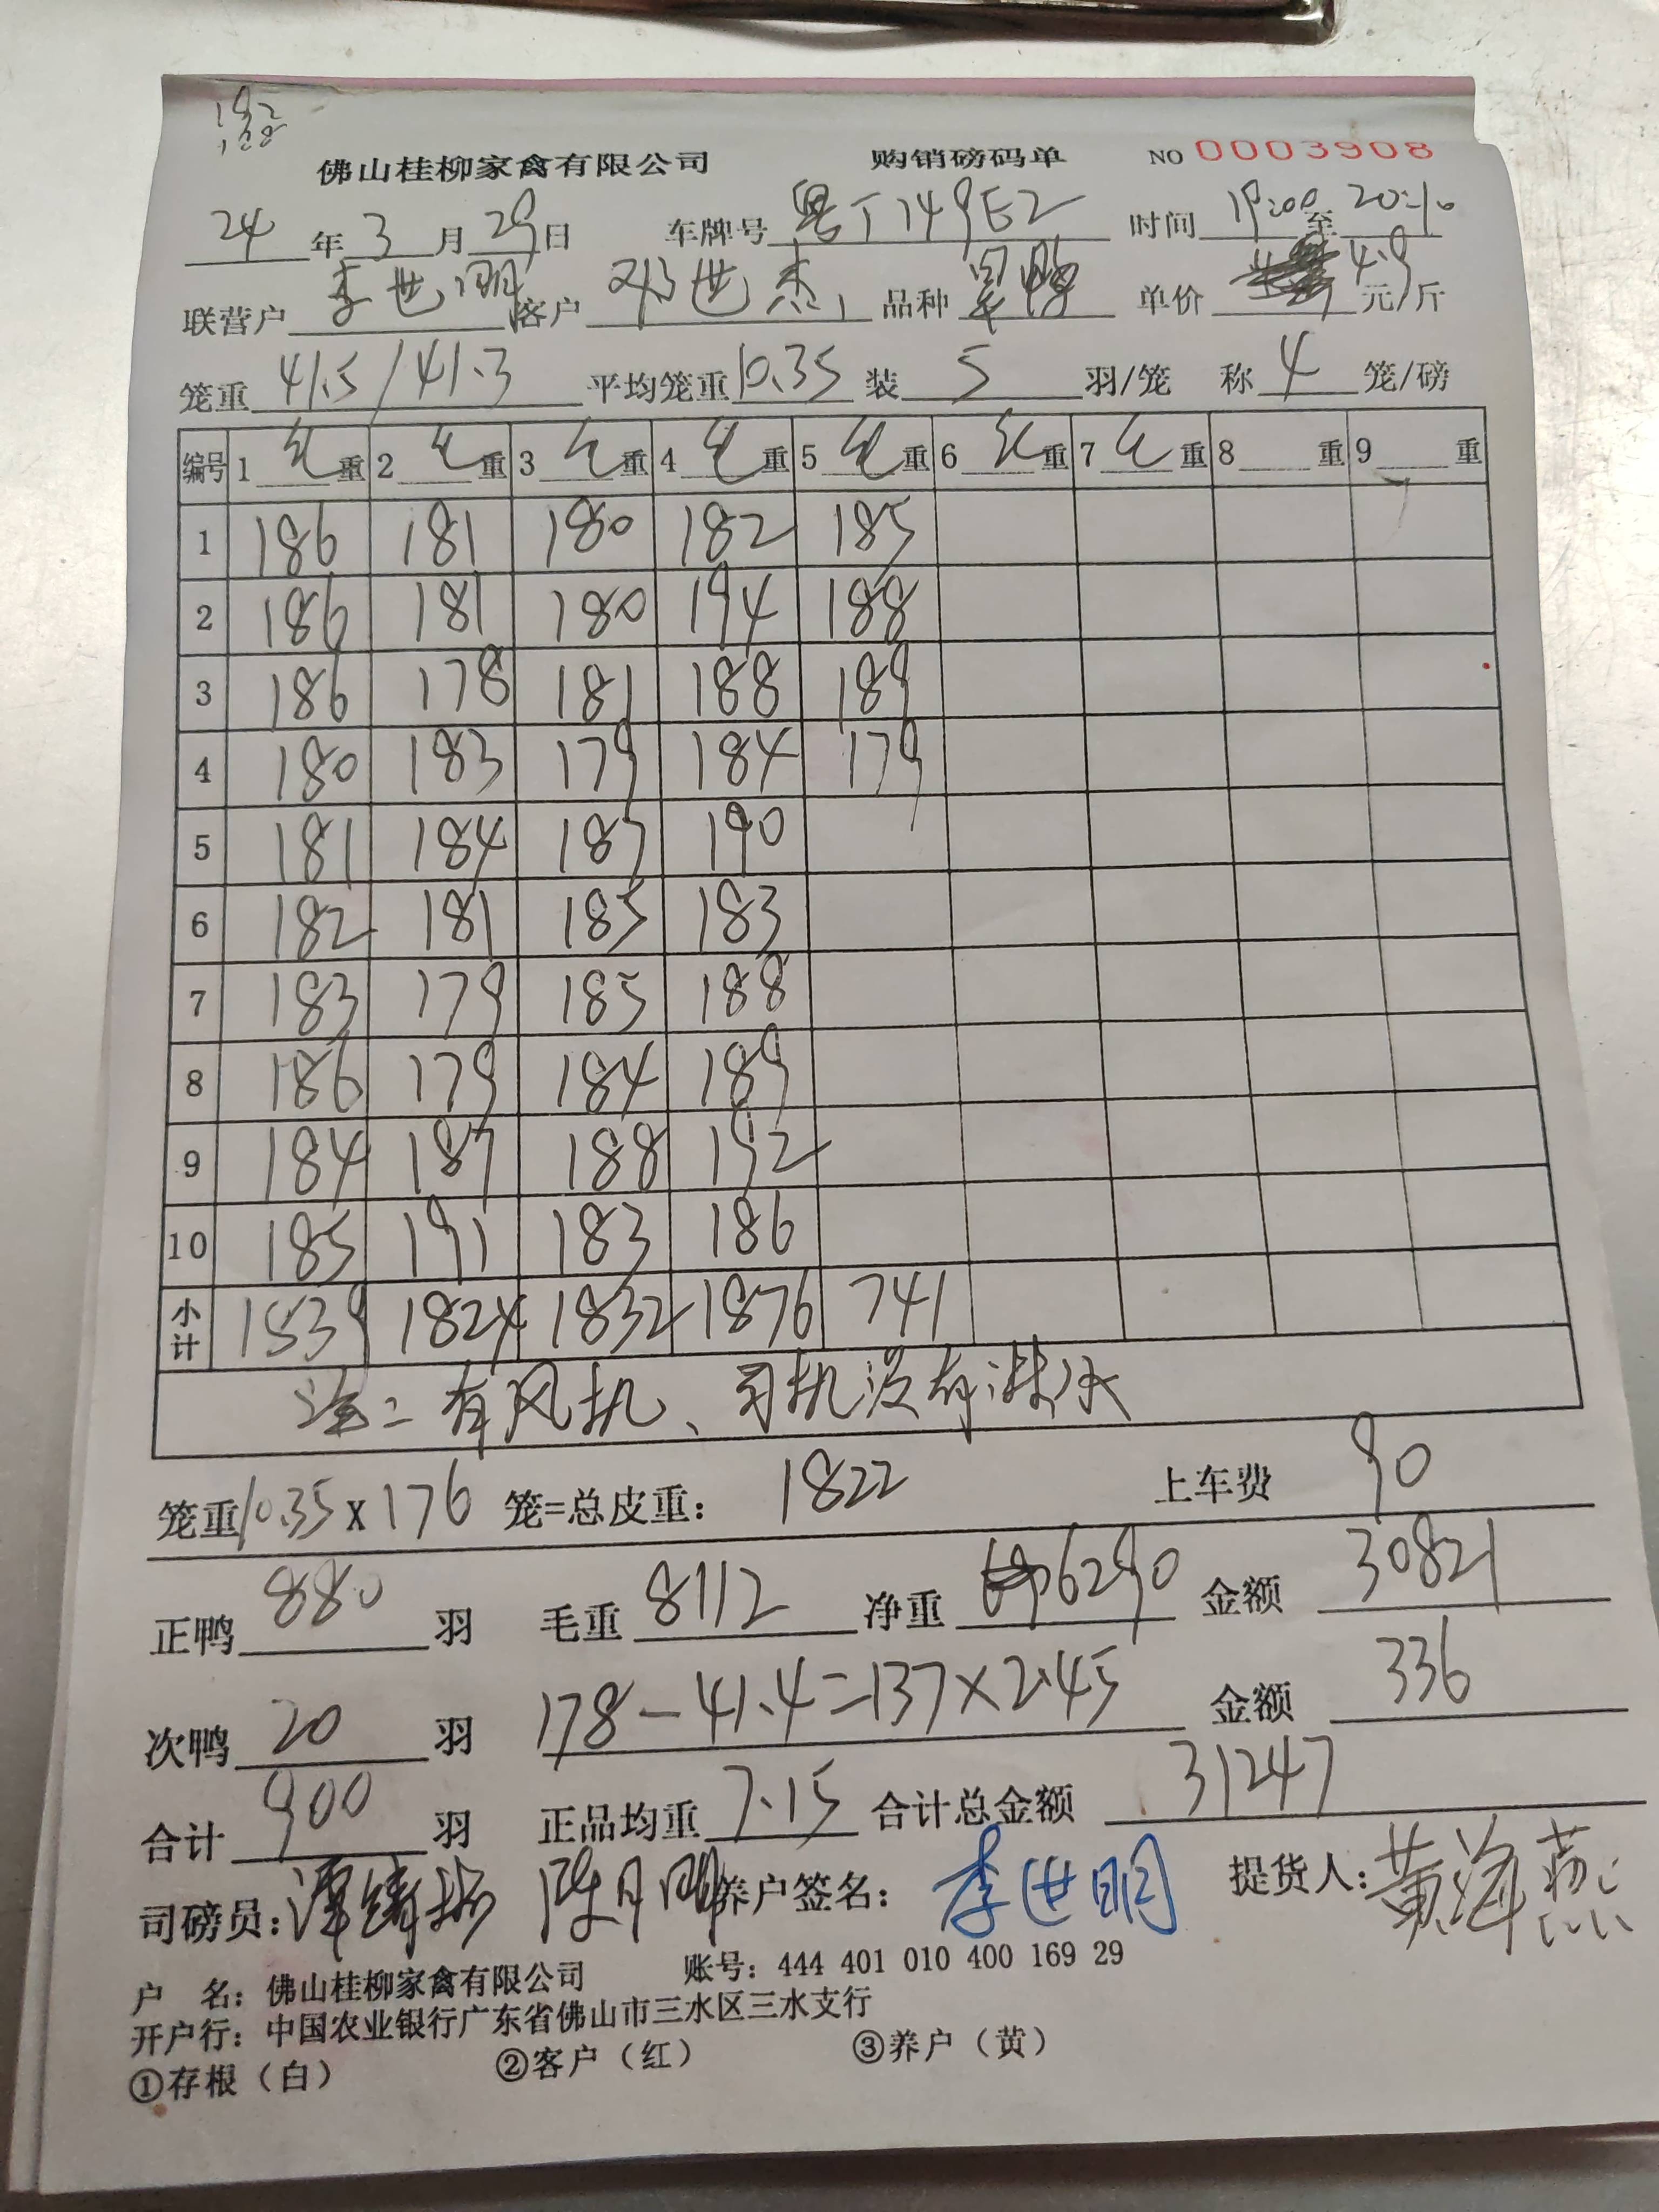 192
188
佛山桂柳家禽有限公司 购销磅码单 NO 0003908
24年3月29日 车牌号 粤T149E2 时间 19:00至20:10
联营户 李世明 客户 邓世杰 品种 单价 4.9元/斤
笼重 41.5/41.3 平均笼重 10.35 装 5 羽/笼 称 4 笼/磅
编号 1 毛重 2 毛重 3 毛重 4 毛重 5 毛重 6 毛重 7 毛重 8 重 9 重
1 186 181 180 182 185
2 186 181 180 194 188
3 186 178 181 188 189
4 180 183 179 184 179
5 181 184 187 190
6 182 181 185 183
7 183 179 185 188
8 186 179 184 189
9 184 187 188 192
10 185 191 183 186
小计 1839 1824 1832 1876 741
注:有风机、司机没有淋水
笼重10.35x176 笼=总皮重: 1822 上车费 90
正鸭 880 羽 毛重 8112 净重 6290 金额 30821
次鸭 20 羽 178-41.4=137×2.45 金额 336
合计 900 羽 正品均重 7.15 合计总金额 31247
司磅员: 陈月明 养户签名: 李世明 提货人: 黄海燕
户 名: 佛山桂柳家禽有限公司 账号: 444 401 010 400 169 29
开户行: 中国农业银行广东省佛山市三水区三水支行
①存根(白) ②客户(红) ③养户(黄)